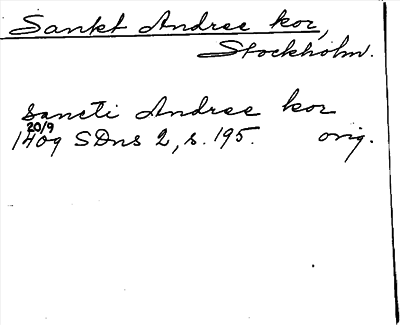 Sankt Andree kor,
Stockholm.
Sancti Andree kor
20/9
1409 SDns 2, s. 195. orig.